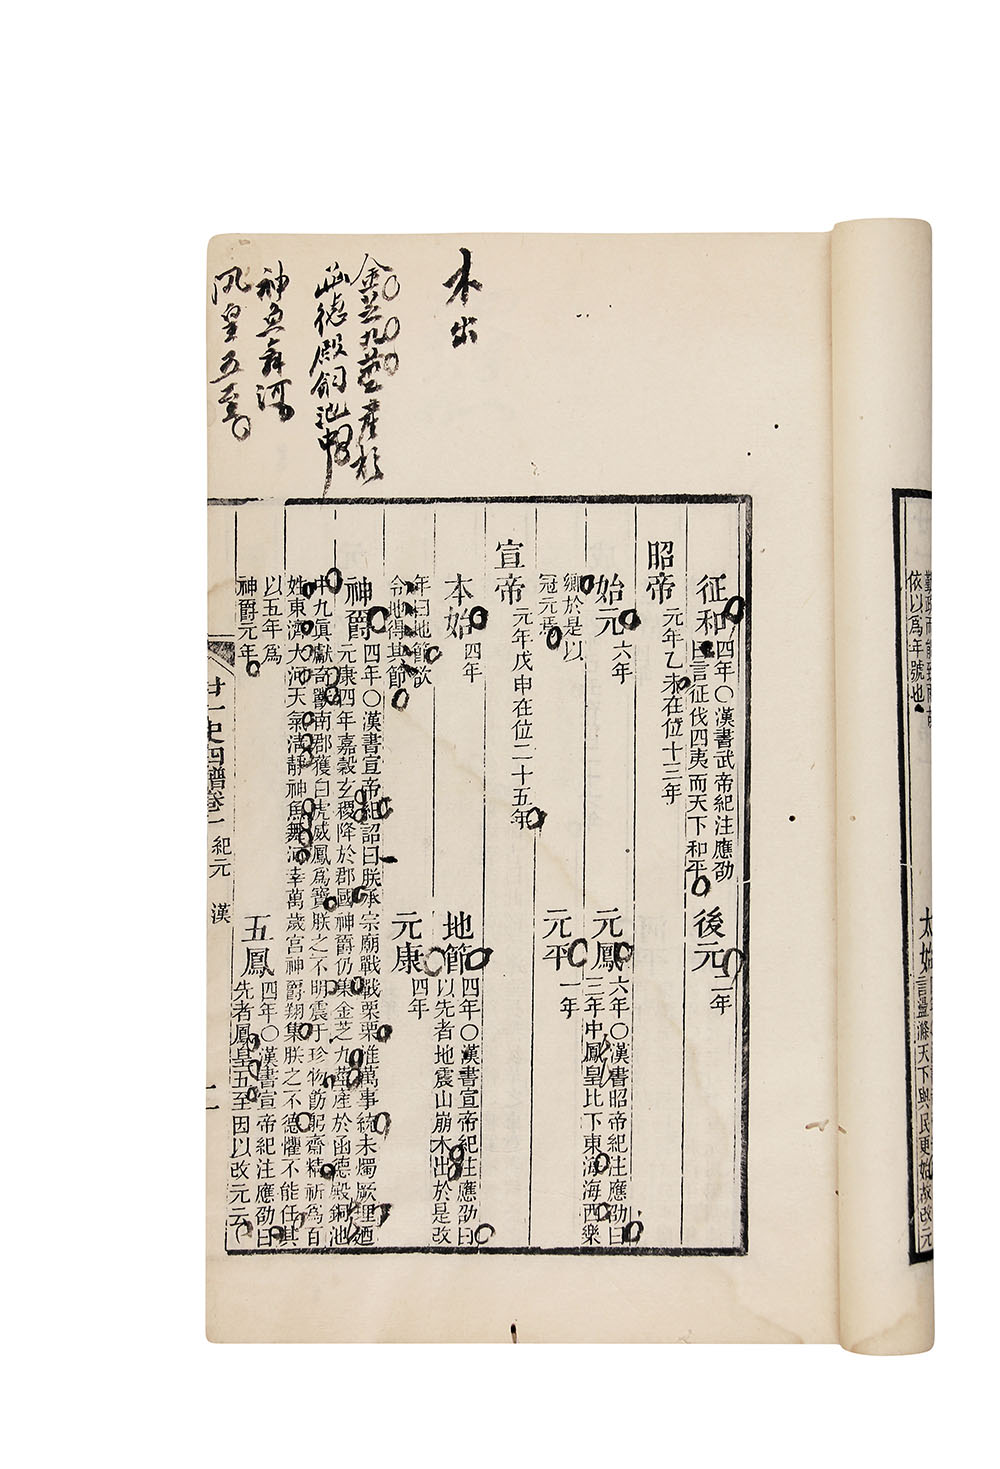 依以爲年號也
太始
言盪滌天下與民更始故改元
木出
金芝九莖產於
函德殿銅池中
神魚舞河
鳳皇五至
征和 四年〇漢書武帝紀注應劭
曰言征伐四夷而天下和平
後元 二年
昭帝 元年乙未在位十三年
始元 六年
元鳳 六年〇漢書昭帝紀注應劭曰
三年中鳳皇比下東海海西樂
鄉於是以
冠元焉
元平 一年
宣帝 元年戊申在位二十五年
本始 四年
地節 四年〇漢書宣帝紀注應劭曰
以先者地震山崩木出於是改
年曰地節欲
令地得其節
元康 四年
神爵 四年〇漢書宣帝紀詔曰朕承宗廟戰戰栗栗惟萬事統未燭厥理迺
元康四年嘉穀玄稷降於郡國神爵仍集金芝九莖產於函德殿銅池
中九眞獻奇獸南郡獲白虎威鳳爲寶朕之不明震于珍物飭躬齋精祈爲百
姓東濟大河天氣淸靜神魚舞河幸萬歲宮神爵翔集朕之不德懼不能任其
以五年爲
神爵元年
五鳳 四年〇漢書宣帝紀注應劭曰
先者鳳皇五至因以改元云
廿一史四譜卷一 紀元 漢 二